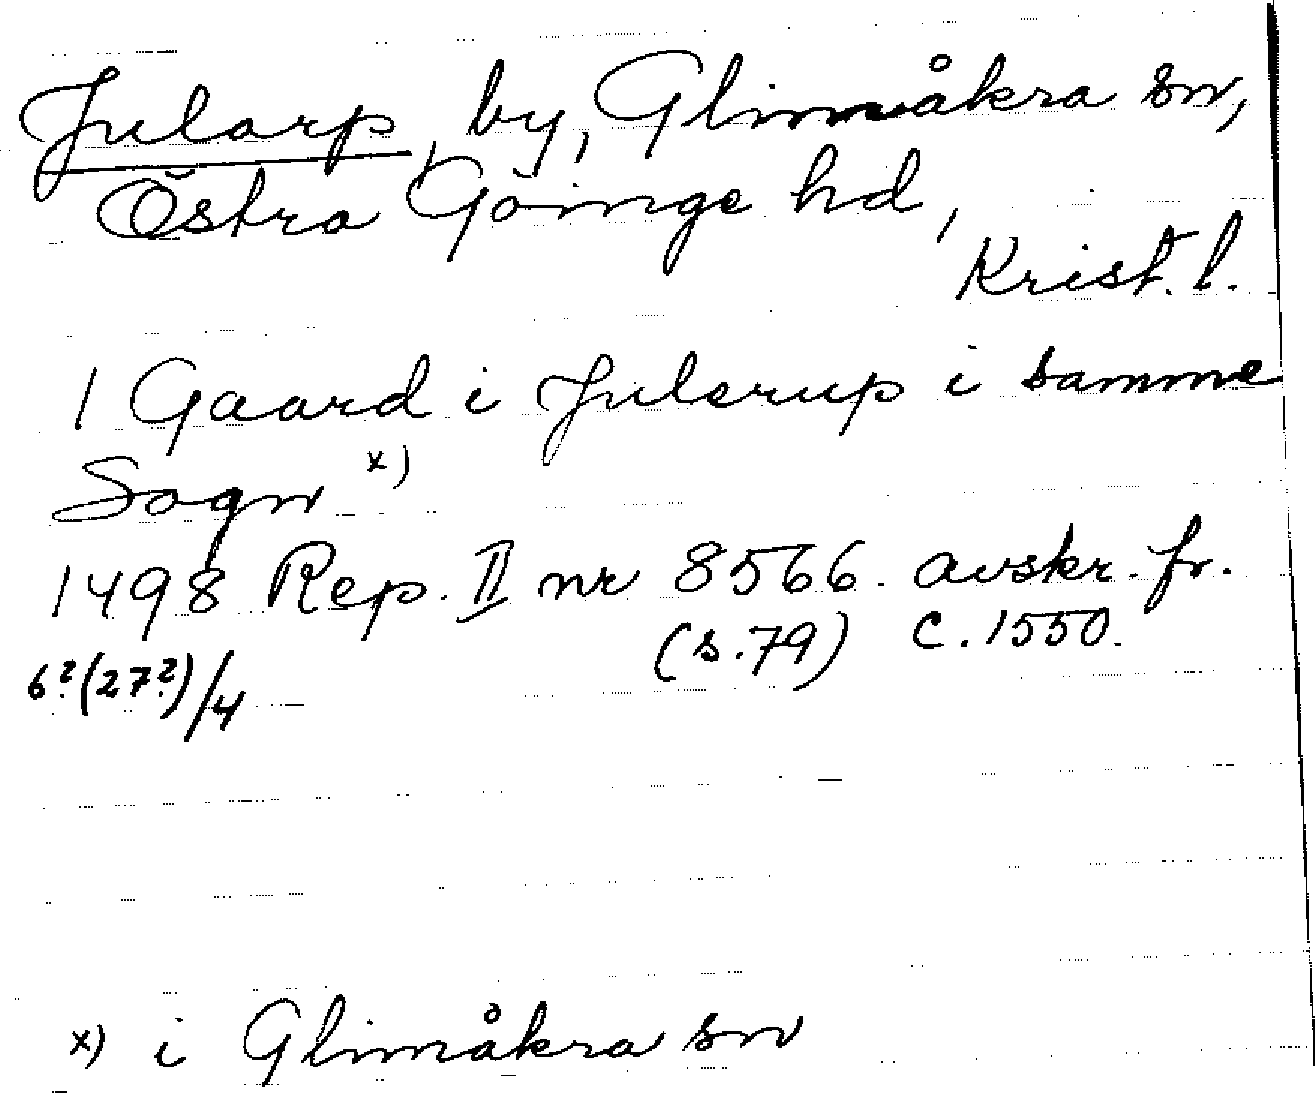 Jularp, by, Glimåkra sn,
Östra Göinge hd,
Krist. l.
1 Gaard i Julerup i samme
Sogn x)
1498 Rep. II nr 8566. avskr. fr.
(s. 79) c. 1550.
6?(27?)/4
x) i Glimåkra sn